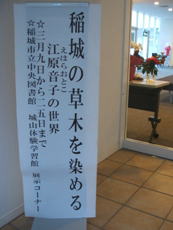 稲城の草木を染める
えはらおとこ
江原音子の世界
☆三月九日から二五日まで
☆稲城市立中央図書館
城山体験学習館
展示コーナー